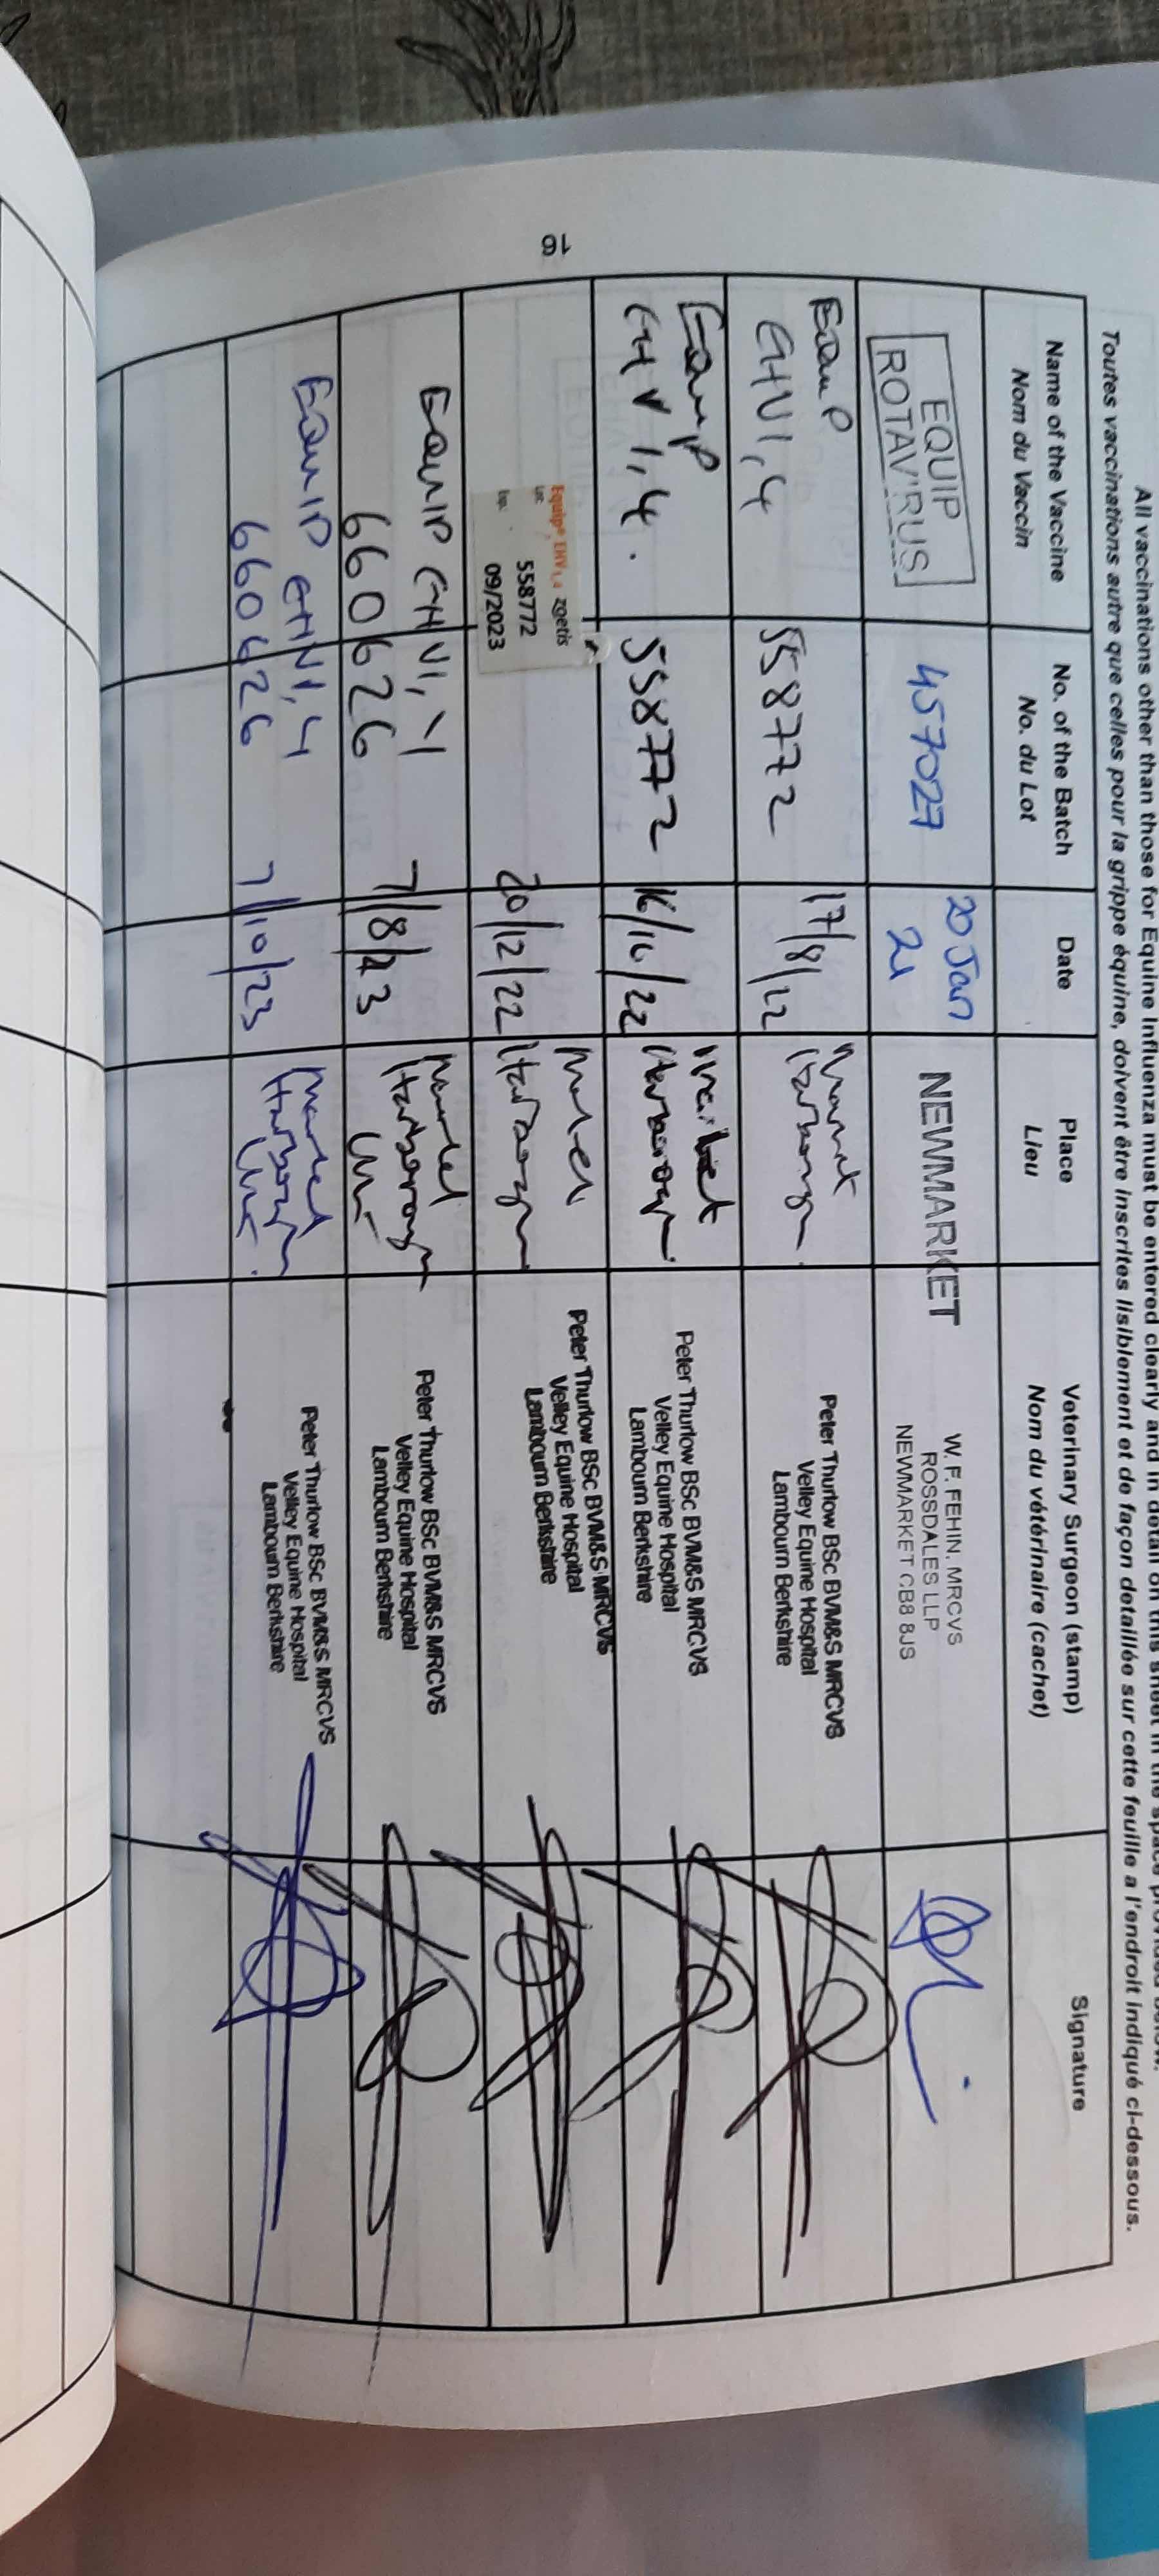 All vaccinations other than those for Equine Influenza must be entered clearly and in detail on this sheet in the space provided below.
Toutes vaccinations autre que celles pour la grippe équine, doivent être inscrites lisiblement et de façon detaillée sur cette feuille a l'endroit indiqué ci-dessous.
Name of the Vaccine
Nom du Vaccin
No. of the Batch
No. du Lot
Date
Place
Lieu
Veterinary Surgeon (stamp)
Nom du vétérinaire (cachet)
Signature
EQUIP
ROTAV'RUS
457027
20 Jan
21
NEWMARKET
W. F. FEHIN. MRCVS
ROSSDALES LLP
NEWMARKET CB8 8JS
EquiP
EHV1,4
558772
17/8/22
Market
Harborough
Peter Thurlow BSc BVM&S MRCVS
Valley Equine Hospital
Lambourn Berkshire
Equip
EHV 1,4.
558772
16/10/22
Market
Harborough
Peter Thurlow BSc BVM&S MRCVS
Valley Equine Hospital
Lambourn Berkshire
Equip® EHV1,4 zoetis
Lot: 558772
Exp. 09/2023
20/12/22
Market
Harborough
Peter Thurlow BSc BVM&S MRCVS
Valley Equine Hospital
Lambourn Berkshire
EquIP EHV1,4
660626
7/8/23
Market
Harborough
Peter Thurlow BSc BVM&S MRCVS
Valley Equine Hospital
Lambourn Berkshire
EquIP EHV1,4
660626
7/10/23
Market
Harborough
Peter Thurlow BSc BVM&S MRCVS
Valley Equine Hospital
Lambourn Berkshire
19